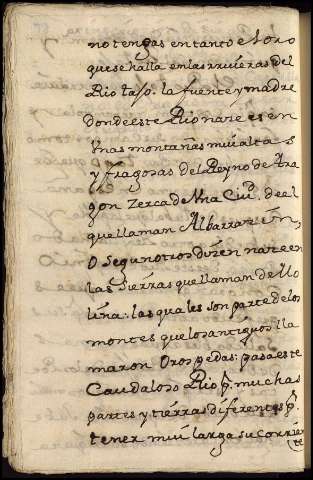 no tengas en tanto el oro
que se halla en las rriueras del
Rio tajo. la fuente y madre
donde este Rio naze es en
Vnas montañas mui altas
y fragosas del Reyno de Ara
gon zerca de Vna Ciud. de el
que llaman Albarrazin,
o segun otros dizen naze en
las sierras que llaman de Mo
lina: las quales son parte de los
montes que los antiguos lla
maron Orospedas: pasa este
Caudaloso Rio p. muchas
partes y tierras diferentes p.
tener mui larga su corrien
te